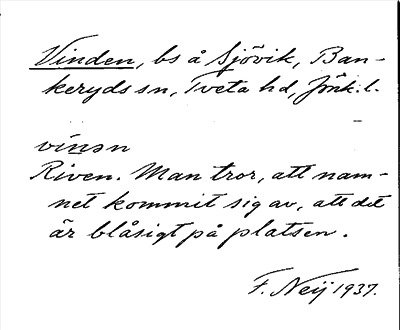 Vinden, bs å Sjövik, Ban-
keryds sn, Tveta hd, Jönk. l.
vínən
Riven. Man tror, att nam-
net kommit sig av, att det
är blåsigt på platsen.
F. Neij 1937.